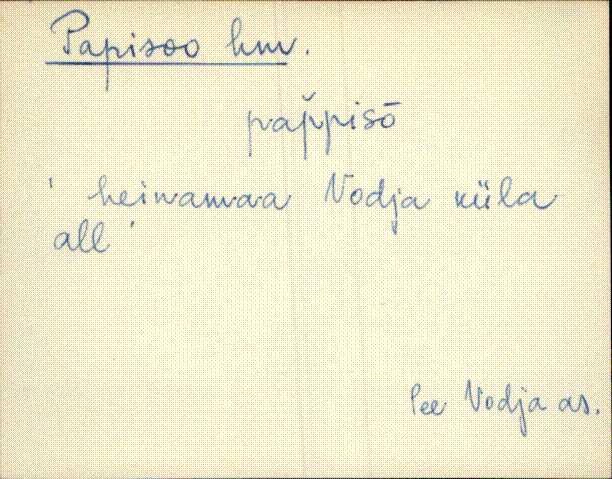 Papisoo hm.
pap̆pisō
' heinamaa Vodja küla
all '
Pee Vodja as.